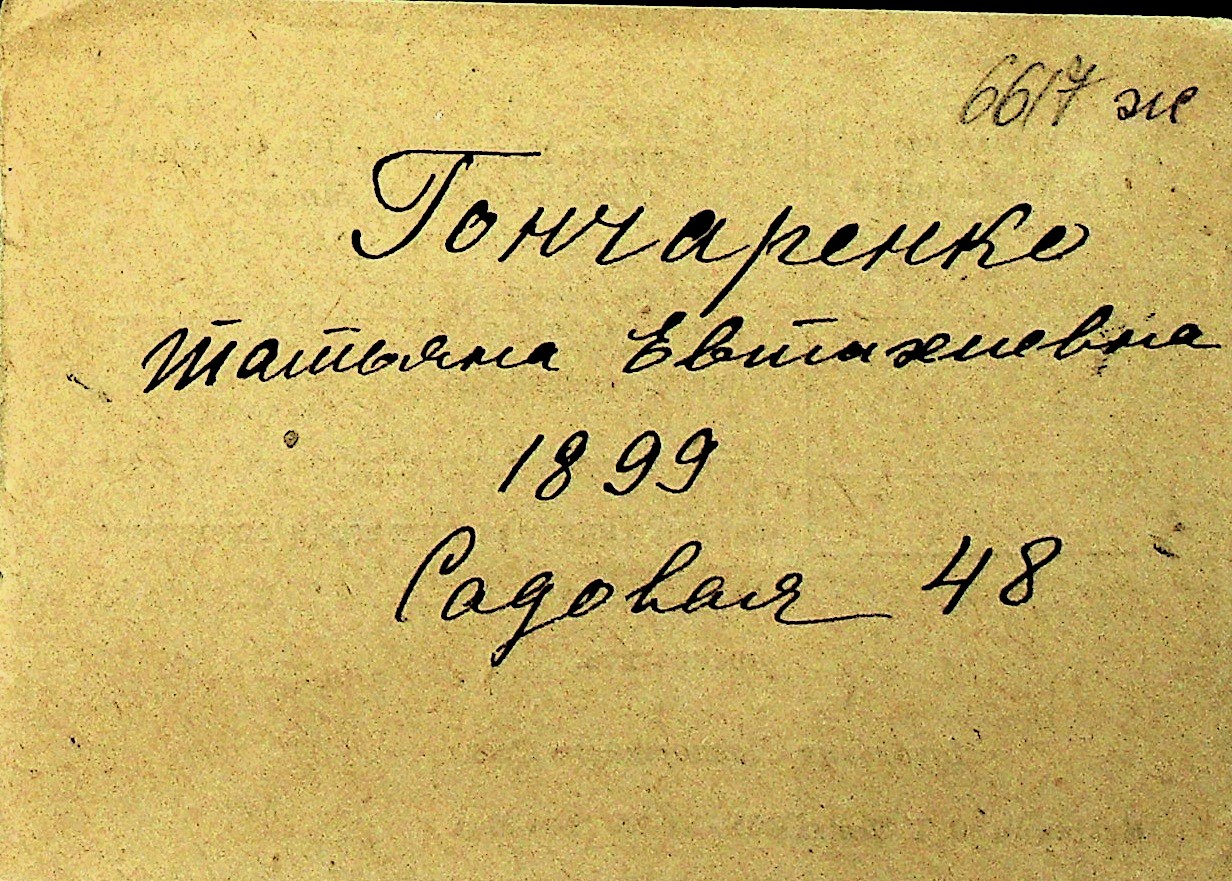 6617 ж
Гончаренко
Татьяна Евтихиевна
1899
Садовая 48